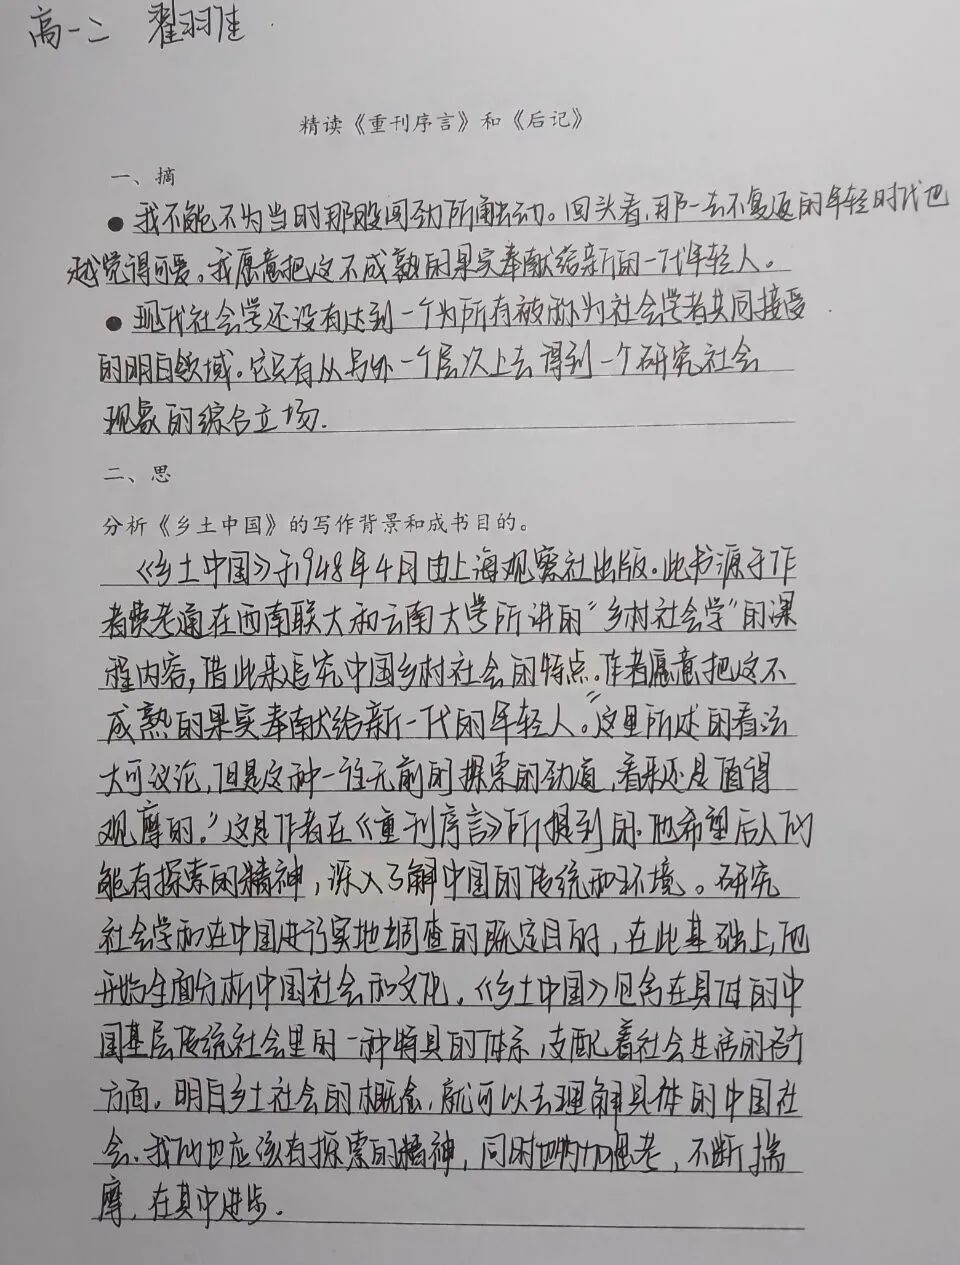 高一二 翟羽佳
精读《重刊序言》和《后记》
一、摘
●我不能不为当时那股闯劲所触动。回头看,那一去不复返的年轻时代也
越觉得可爱。我愿意把这不成熟的果实奉献给新的一代年轻人。
●现代社会学还没有达到一个为所有被称为社会学者共同接受
的明白领域。它只有从另外一个层次上去得到一个研究社会
现象的综合立场.
二、思
分析《乡土中国》的写作背景和成书目的。
《乡土中国》于1948年4月由上海观察社出版。此书源于作
者费孝通在西南联大和云南大学所讲的“乡村社会学”的课
程内容,借此来追究中国乡村社会的特点.作者愿意把这不
成熟的果实奉献给新一代的年轻人。“这里所述的看法
大可议论,但是这种一往无前的探索的劲道,看来还是值得
观摩的。”这是作者在《重刊序言》所提到的.他希望后人们
能有探索的精神,深入了解中国的传统和环境。研究
社会学和在中国进行实地调查的既定目的,在此基础上,他
开始全面分析中国社会和文化.《乡土中国》包含在具体的中
国基层传统社会里的一种特具的体系,支配着社会生活的各个
方面。明白乡土社会的概念,就可以去理解具体的中国社
会.我们也应该有探索的精神,同时也要加思考,不断揣
摩,在其中进步.